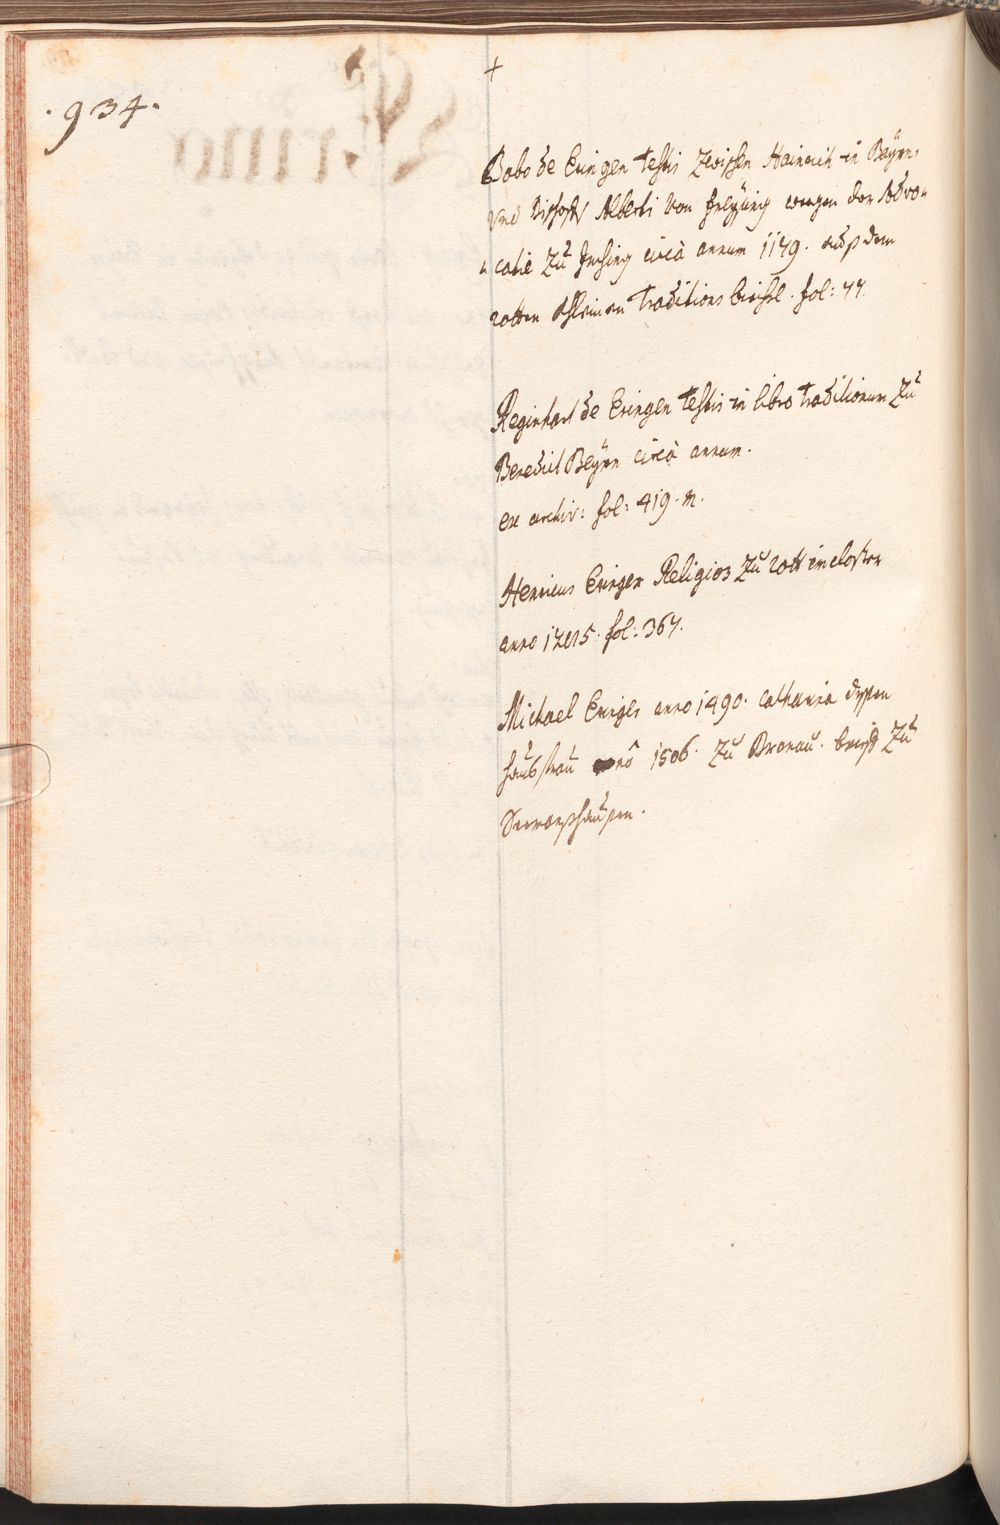 · 934 ·
+
Babo de Eringen testis zwischen Heinrich in Bayrn
und Bischoff Alberti von Freysing wegen der Advo-
catie zu Inching circà annum 1179. auß dem
rotten Kleinen Traditions biechl. fol: 77.
Reginhart de Eringen testis in libro traditionum zu
Benedict Beyrn circà annum.
ex archiv: fol: 419. n.
Henricus Eringer Religios zu rott im closter
anno fol: 367.
Michael Eringer anno 1490. Catharina
haußfrau anô 1506. zu Braunau. brieff zu